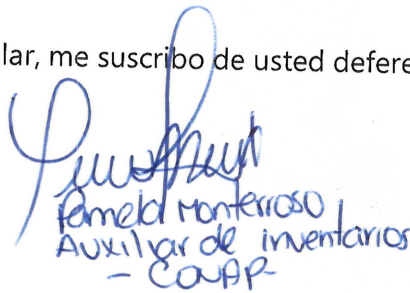 lar, me suscribo de usted defere
Pamela Monterroso
Auxiliar de inventarios
- CONAP-